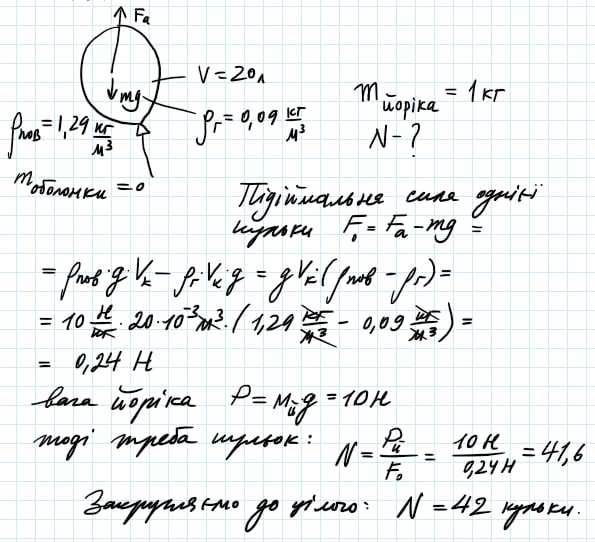 Fₐ
V = 20л
mg
m йоріка = 1 кг
ρпов = 1,29 кг/м³
ρг = 0,09 кг/м³
N - ?
m оболонки = 0
Підіймальна сила однієї
кульки F₀ = Fₐ - mg =
= ρпов·g·Vк - ρг·Vк·g = gVк·(ρпов - ρг) =
= 10 Н/кг · 20·10⁻³ м³ · (1,29 кг/м³ - 0,09 кг/м³) =
= 0,24 Н
вага йоріка P = Mй g = 10Н
тоді треба кульок: N = Pй/F₀ = 10Н/0,24Н = 41,6
Закругляємо до цілого: N = 42 кульки.